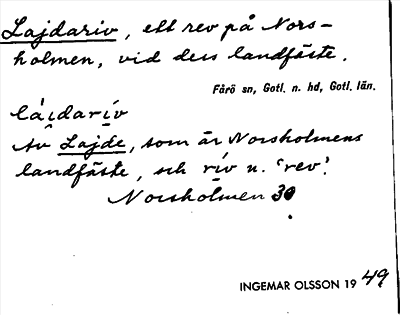 Lajdariv, ett rev på Nors-
holmen, vid dess landfäste.
Fårö sn, Gotl. n. hd, Gotl. län.
láidarív
Av Lajde, som är Norsholmens
landfäste, och rív n. 'rev'.
Norsholmen 30
INGEMAR OLSSON 1949